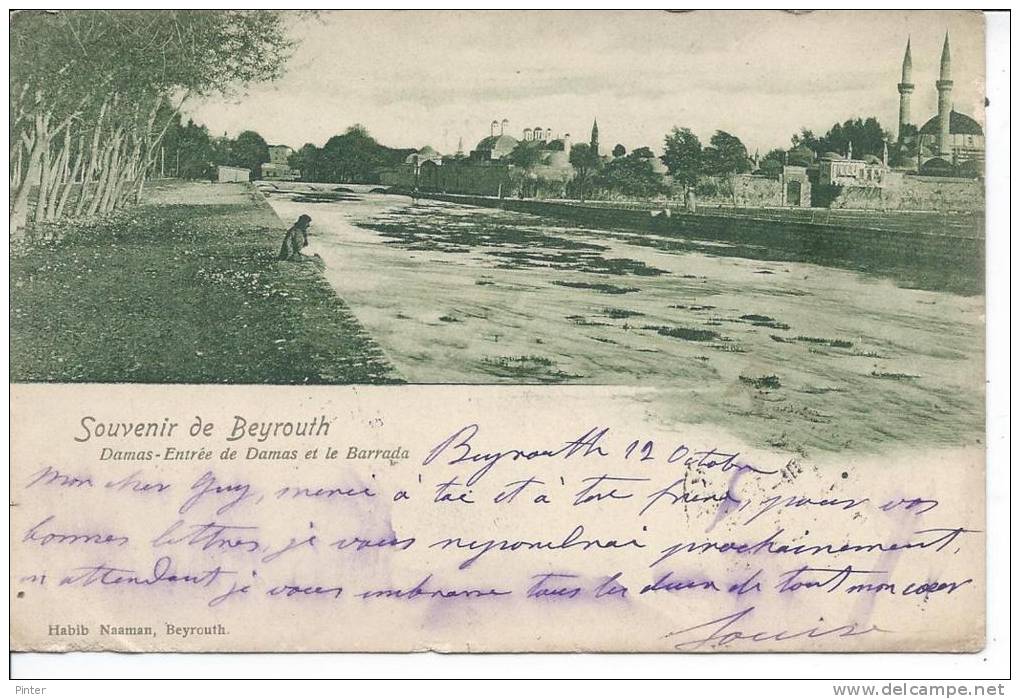 Souvenir de Beyrouth
Damas-Entrée de Damas et le Barrada
Beyrouth 12 Octobre
Mon cher Guy, merci à toi et à ton frère, pour vos
bonnes lettres, je vous reponderai prochainement,
en attendant je vous embrasse tous les deux de tout mon coeur
Louise
Habib Naaman, Beyrouth.
Pinter
www.delcampe.net